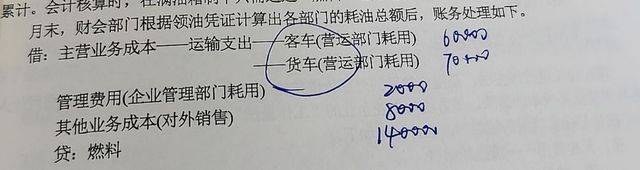 累计。会计核算时，在满油箱制下
月末，财会部门根据领油凭证计算出各部门的耗油总额后，账务处理如下。
借：主营业务成本——运输支出——客车(营运部门耗用) 60000
——货车(营运部门耗用) 70000
管理费用(企业管理部门耗用) 2000
其他业务成本(对外销售) 8000
贷：燃料 140000